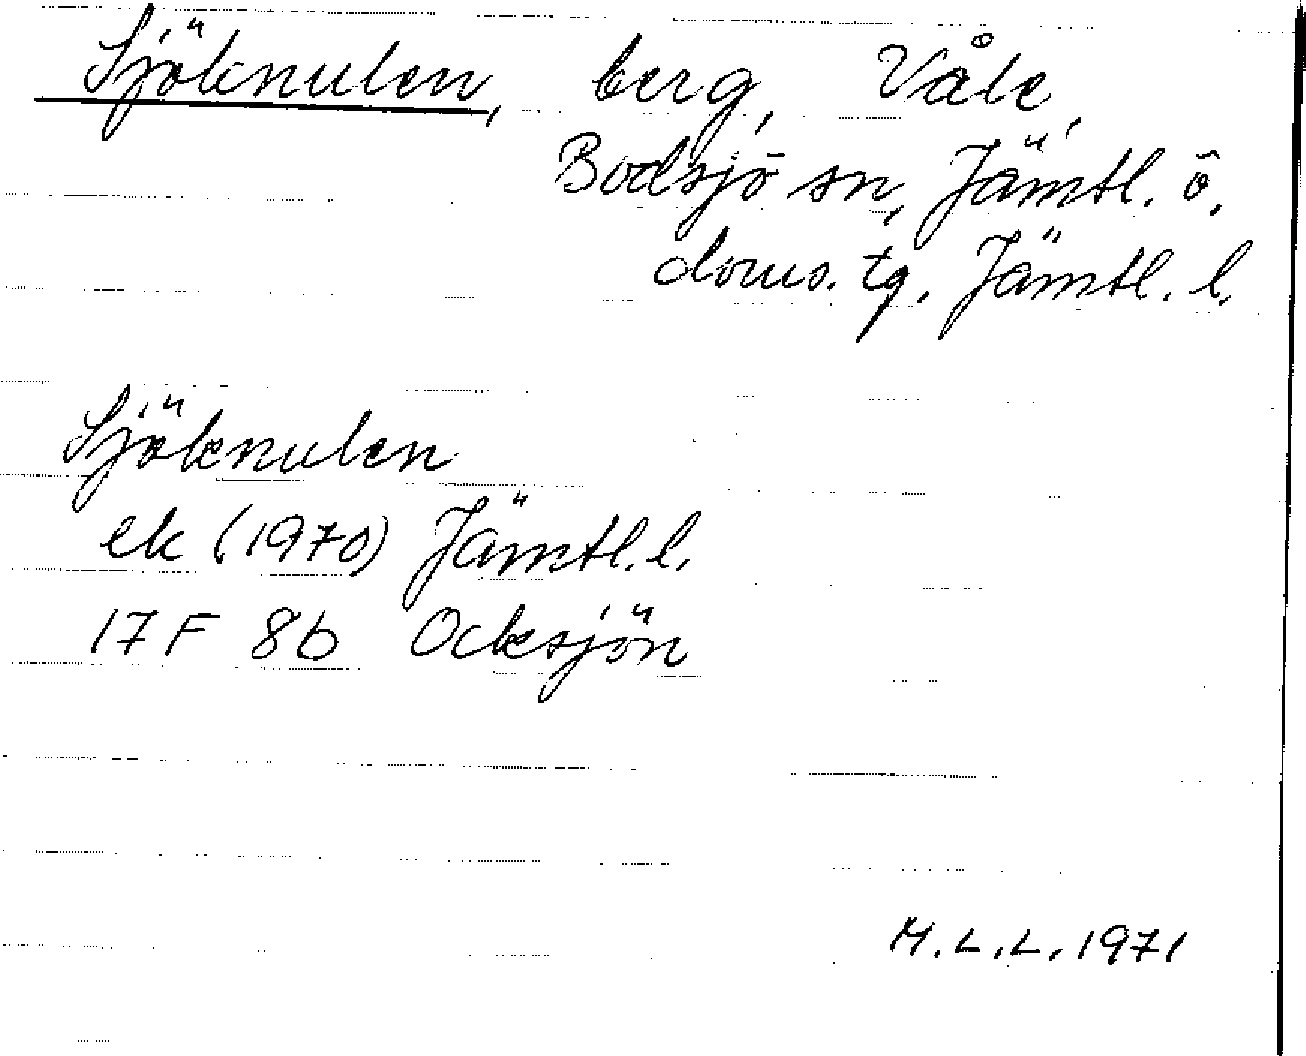 Sjöknulen, berg, Våle,
Bodsjö sn, Jämtl. ö.
doms. tg, Jämtl. l.
Sjöknulen
ek (1970) Jämtl. l.
17 F 8b Ocksjön
M.L.L. 1971